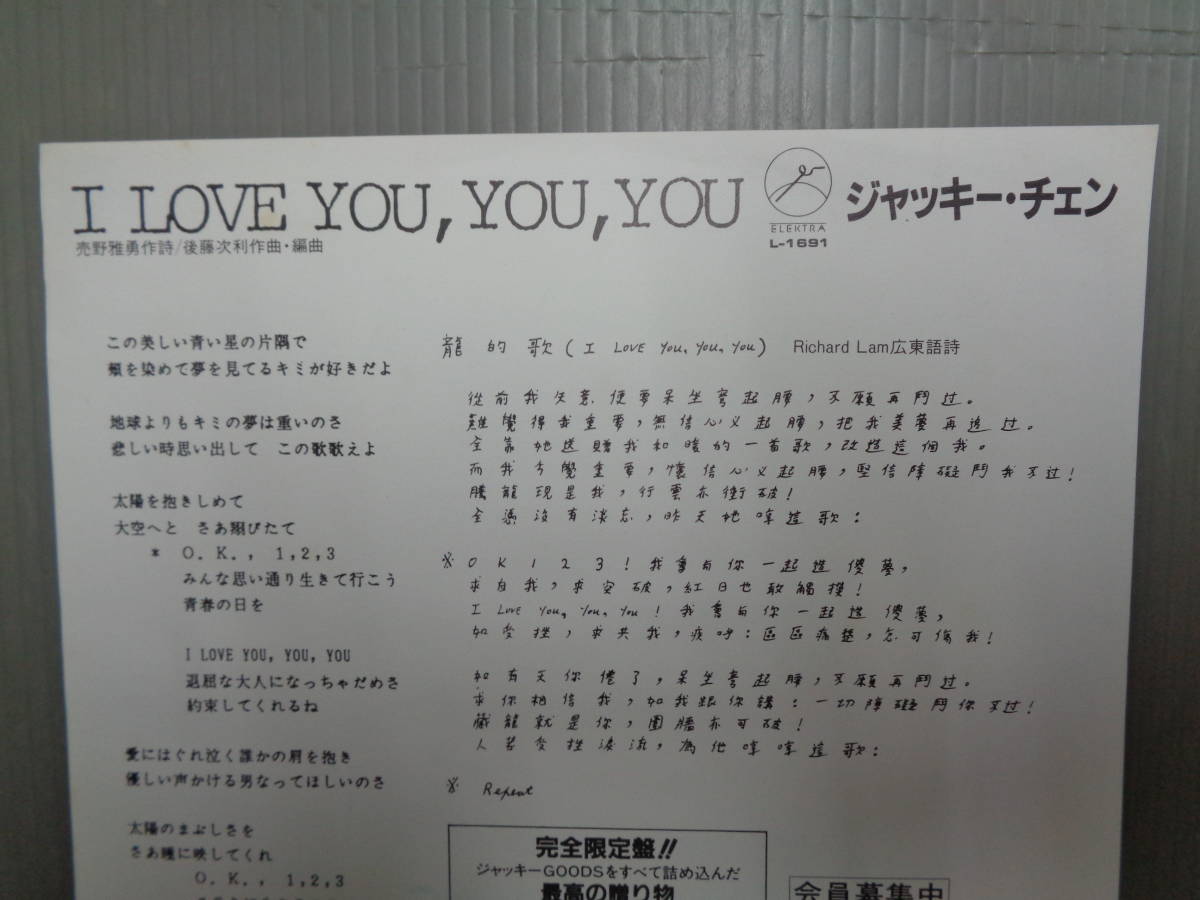 I LOVE YOU, YOU, YOU
売野雅勇作詩/後藤次利作曲・編曲
ELEKTRA
L-1691
ジャッキー・チェン
この美しい青い星の片隅で
頬を染めて夢を見てるキミが好きだよ
地球よりもキミの夢は重いのさ
悲しい時思い出して この歌歌えよ
太陽を抱きしめて
大空へと さあ翔びたて
* O. K., 1,2,3
みんな思い通り生きて行こう
青春の日を
I LOVE YOU, YOU, YOU
退屈な大人になっちゃだめさ
約束してくれるね
愛にはぐれ泣く誰かの肩を抱き
優しい声かける男なってほしいのさ
太陽のまぶしさを
さあ瞳に映してくれ
O. K., 1,2,3
龍的歌(I LOVE YOU, YOU, YOU) Richard Lam広東語詩
從前我失意,便要呆坐彎起腰,不願再鬥过。
難覺得我重要,無信心必起腰,把我美夢再追过。
全靠她送贈我和暖的一首歌,改造這個我。
而我今覺重要,懷信心必起腰,堅信障礙鬥我不过!
騰龍現是我,行雲亦衝破!
全憑沒有淡忘,昨天她哼這歌:
※ OK123!我會与你一起造傻夢,
求自我,求突破,紅日也敢觸摸!
I LOVE YOU, YOU, YOU!我會与你一起造傻夢,
如受挫,求共我,疾呼:區區痛楚,怎可傷我!
如有天你倦了,呆坐彎起腰,不願再鬥过。
求你相信我,如我跟你講:一切障礙鬥你不过!
藏龍就是你,圍牆亦可破!
人若受挫淚流,為他哼哼這歌:
※ Repeat
完全限定盤!!
ジャッキーGOODSをすべて詰め込んだ
最高の贈り物
会員募集中